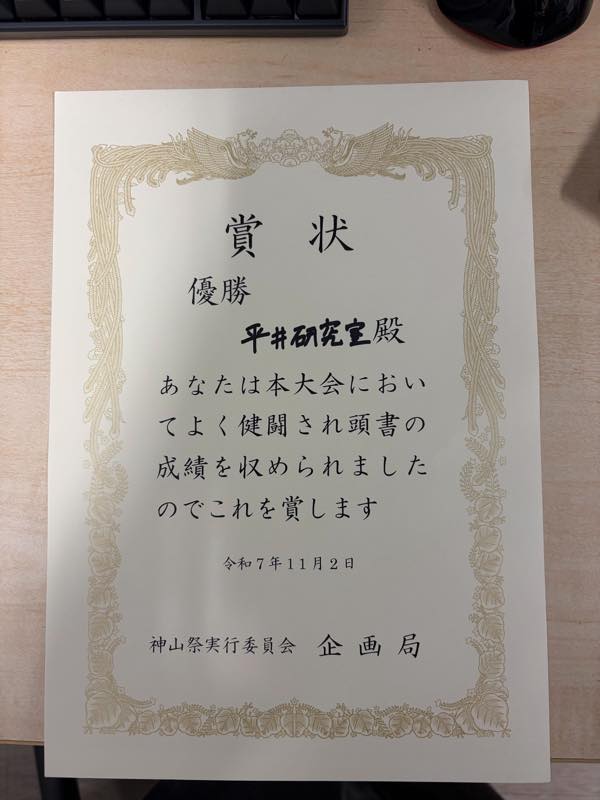 賞状
優勝
平井研究室殿
あなたは本大会におい
てよく健闘され頭書の
成績を収められました
のでこれを賞します
令和7年11月2日
神山祭実行委員会 企画局